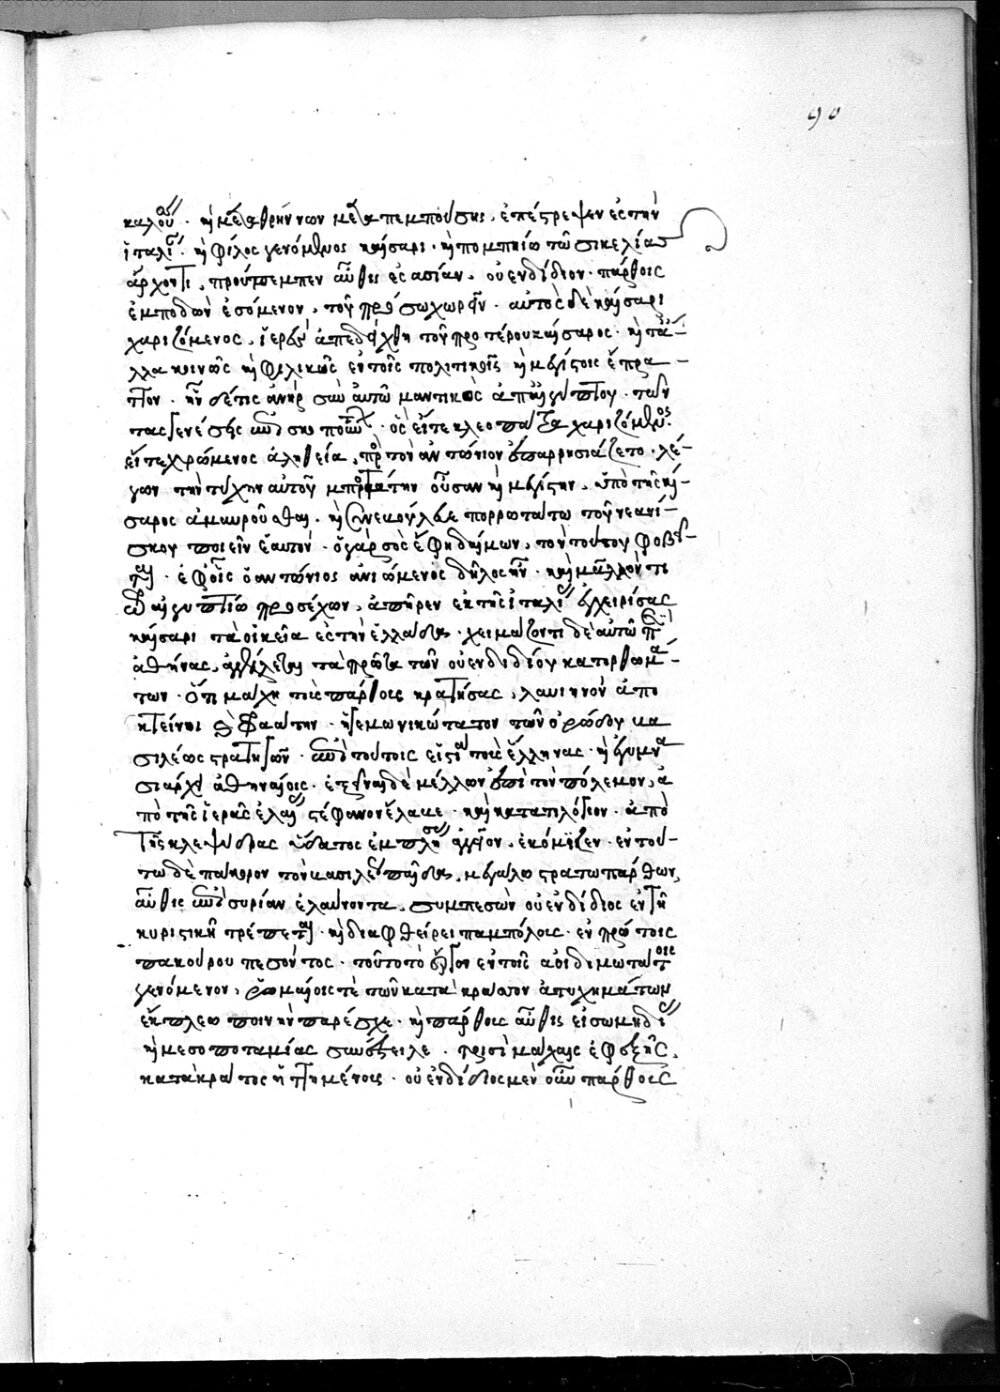 90
καλοῦ. καὶ μετ' Ἀθηναίων μεταπεμπούσης, ἐπέστρεψεν ἐς τὴν
ἰταλίαν. καὶ φίλος γενόμενος καίσαρι. καὶ πομπηίω τῶ σικελίας
ἄρχοντι, προύπεμπεν αὖθις ἐς ἀσίαν, οὐενδίδιον. πάρθοις
ἐμποδὼν ἐσόμενον, τοῦ προσωχωρεῖν. αὐτὸς δὲ καίσαρι
χαριζόμενος, ἱερεὺς ἀπεδείχθη τοῦ προτέρου καίσαρος. καὶ τἄ-
λλα κοινῶς καὶ φιλικῶς ἐν τοῖς πολιτικοῖς καὶ μεγίστοις ἔπρα-
ττον. ἦν δέ τις ἀνὴρ σὺν αὐτῶ μαντικὸς ἀπ' αἰγύπτου. τῶν
τὰς γενέσεις ἐπισκοπούντων. ὃς εἴτε κλεοπάτρα χαριζόμενος
εἴτε χρώμενος ἀληθεία, πρὸς τὸν ἀντώνιον ἐπαρρησιάζετο. λέ-
γων τὴν τύχην αὐτοῦ λαμπροτάτην οὖσαν καὶ μεγίστην, ὑπὸ τῆς καί-
σαρος ἀμαυροῦσθαι. καὶ συνεβούλευε πορρωτάτω τοῦ νεανί-
σκου ποιεῖν ἑαυτόν. ὁ γὰρ σὸς ἔφη δαίμων, τὸν τούτου φοβεῖ-
ται. ἐφ' οἷς ὁ ἀντώνιος ἀνιώμενος δῆλος ἦν. καὶ μᾶλλόν τι
τῶ αἰγυπτίω προσέχων, ἀπῆρεν ἐκ τῆς ἰταλίας ἐγχειρίσας
καίσαρι τὰ οἰκεῖα ἐς τὴν ἑλλάδα. χειμάζοντι δὲ αὐτῶ περὶ
ἀθήνας, ἀγγέλεται τὰ πρῶτα τῶν οὐενδιδίου κατορθωμά-
των. ὅτι μάχη τοὺς πάρθους κρατήσας, λαβιηνὸν ἀπο
κτείνοι καὶ φραάτην. ἡγεμονικώτατον τῶν ὀρώδου βα
σιλέως στρατηγῶν. ἐπὶ τούτοις εἱστία τοὺς ἕλληνας. καὶ ἐγυμνα
σιάρχει ἀθηναίοις. ἐξιέναι δὲ μέλλων ἐπὶ τὸν πόλεμον, ἀ
πὸ τῆς ἱερᾶς ἐλαίας στέφανον ἔλαβε. καὶ κατά τι λόγιον. ἀπὸ
τῆς κλεψύδρας ὕδατος ἐμπλησάμενος ἀγγεῖον. ἐκόμιζεν. ἐν τού-
τω δὲ πάκορον τὸν βασιλέως παῖδα, μεγάλω στρατῶ πάρθων,
αὖθις ἐπὶ συρίαν ἐλαύνοντα. συμπεσὼν οὐενδίδιος ἐν τῆ
κυριστικῆ τρέπεται. καὶ διαφθείρει παμπόλους. ἐν πρώτοις
πακούρου πεσόντος. τοῦτο τὸ ἔργον ἐν τοῖς ἀοιδιμωτάτοις
γενόμενον, ῥωμαίοις τε τῶν κατὰ κράσσον ἀτυχημάτων
ἔκπλεω ποινὴν παρέσχε. καὶ πάρθους αὖθις εἴσω μηδίας
καὶ μεσοποταμίας συνέστειλε. τρισὶ μάχαις ἐφεξῆς,
κατὰ κράτος ἡττημένους. οὐενδίδιος μὲν οὖν πάρθους